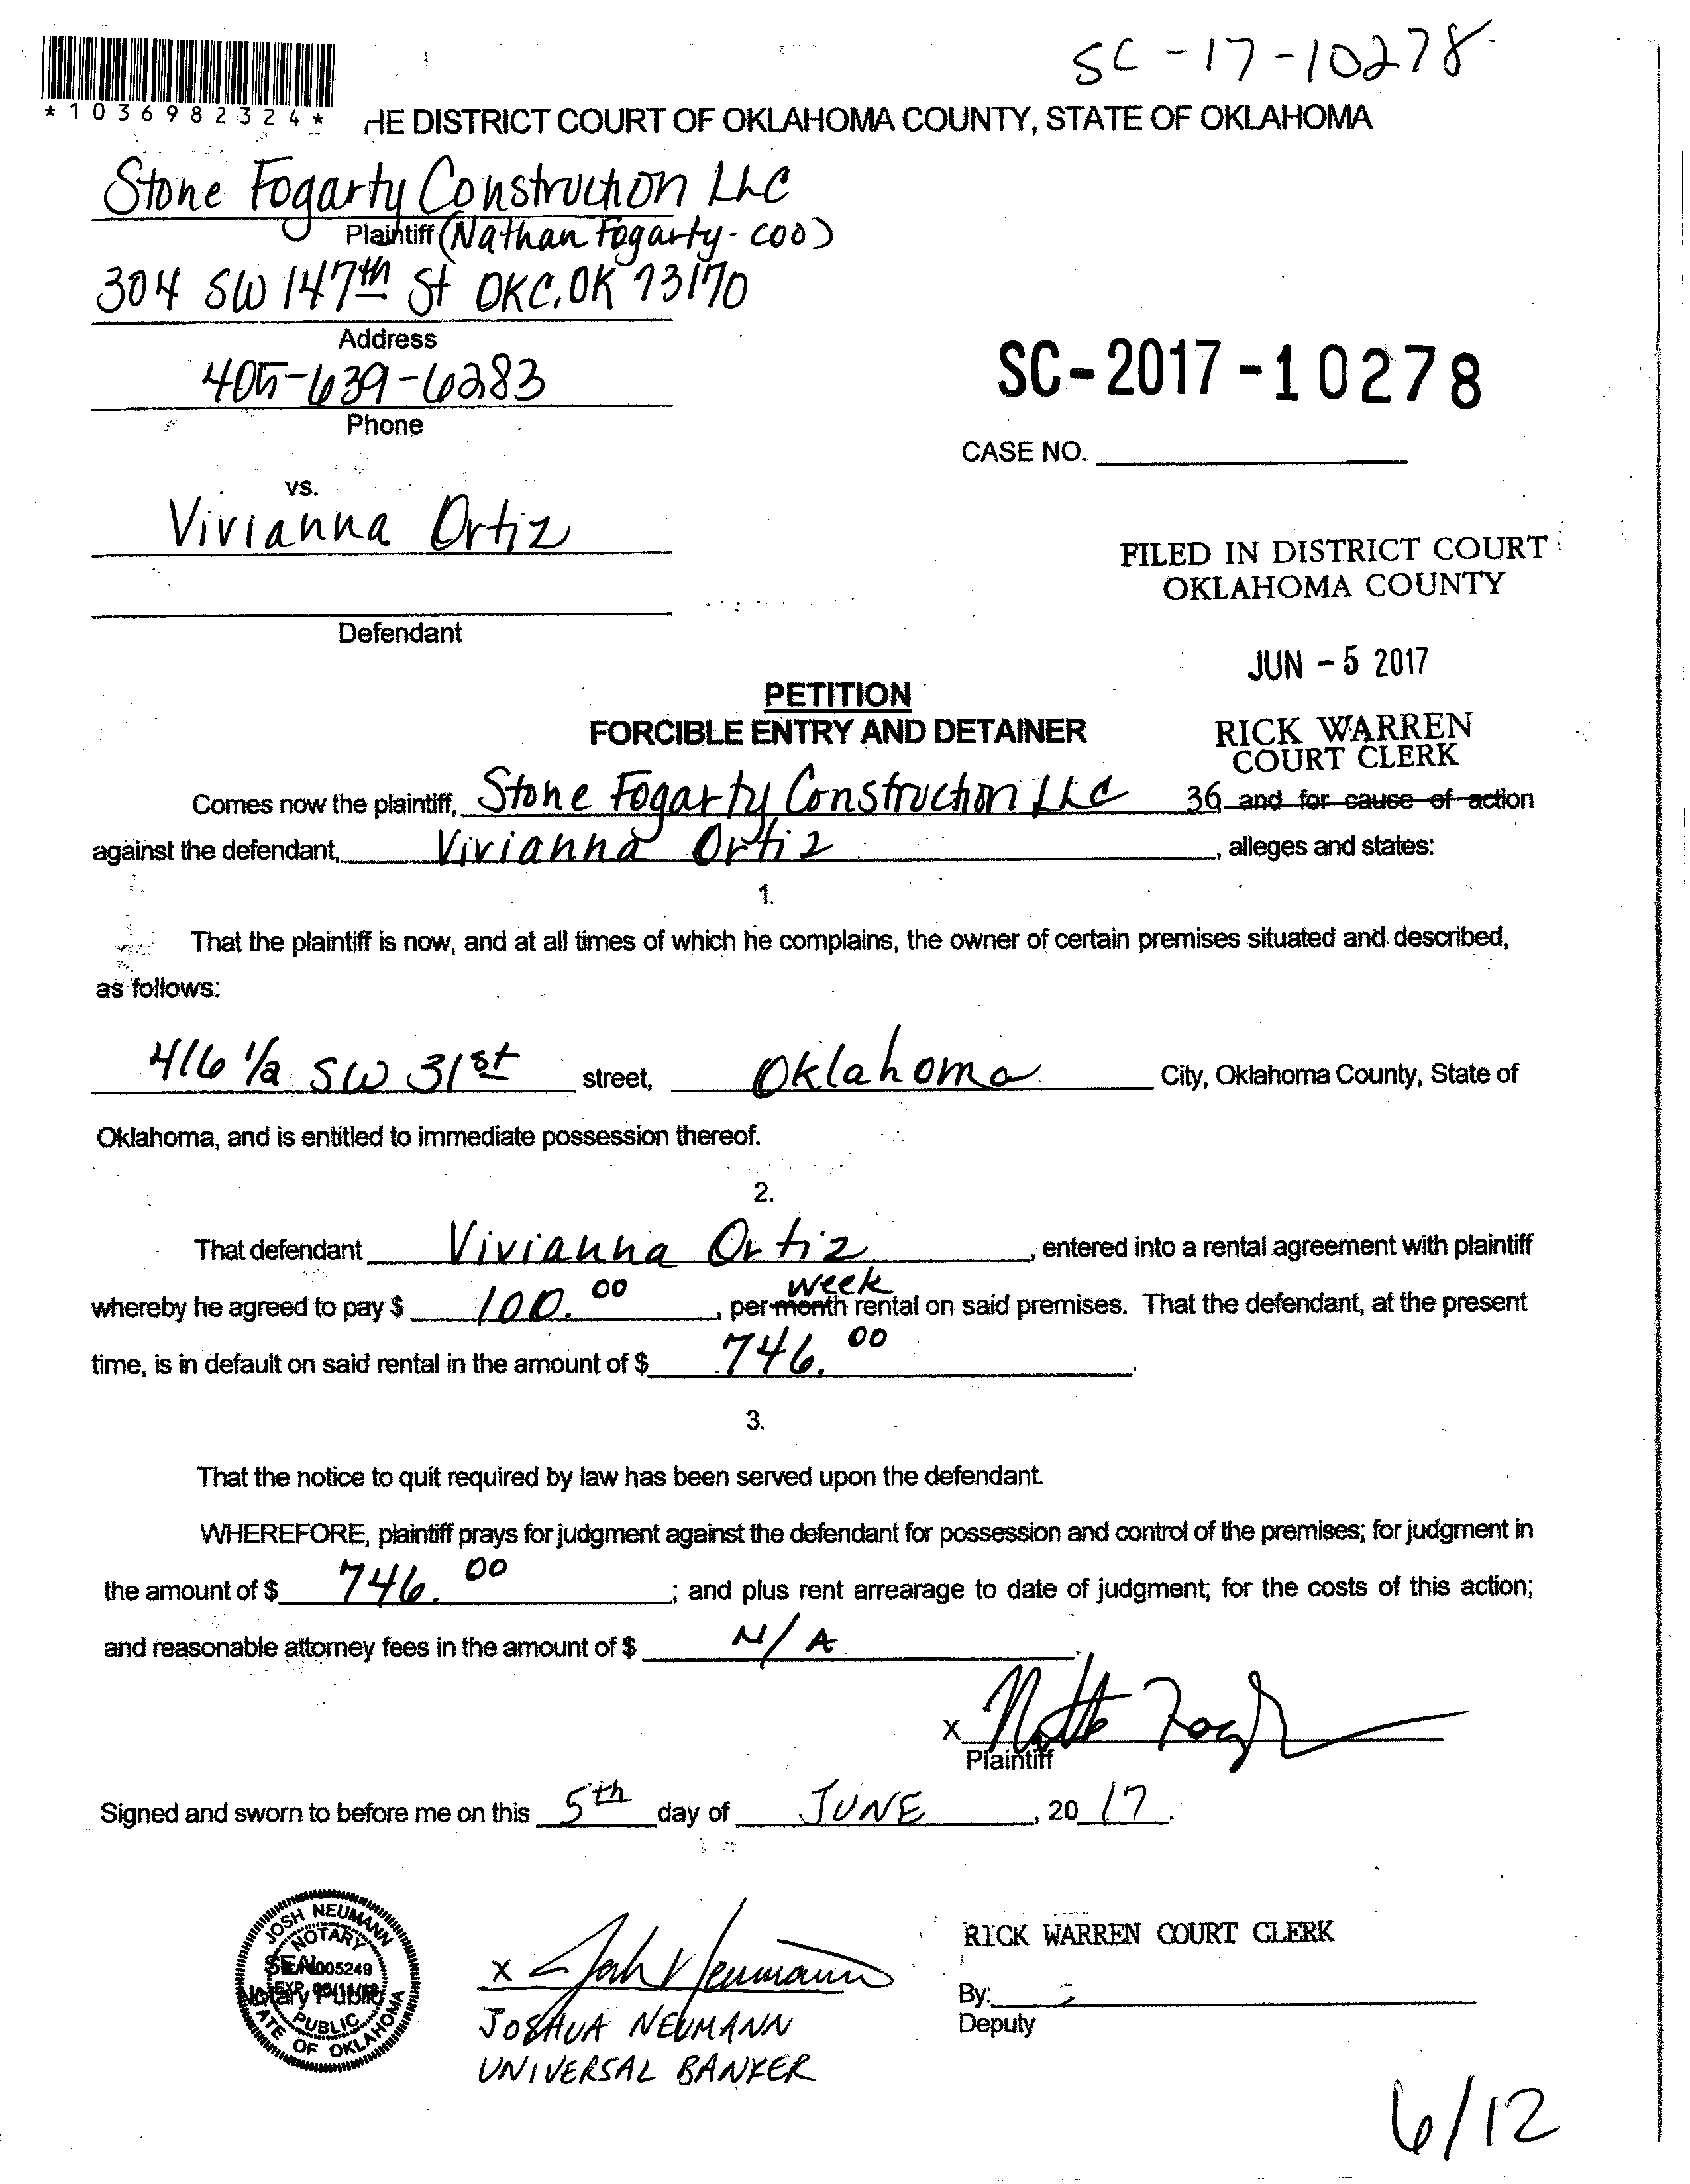 SC-17-10278
*1036982324*
HE DISTRICT COURT OF OKLAHOMA COUNTY, STATE OF OKLAHOMA
Stone Fogarty Construction LLC
Plaintiff (Nathan Fogarty - COO)
304 SW 147th St OKC, OK 73170
Address
405-639-6283
Phone
SC-2017-10278
CASE NO.
vs.
Vivianna Ortiz
Defendant
FILED IN DISTRICT COURT
OKLAHOMA COUNTY
JUN - 5 2017
RICK WARREN
COURT CLERK
PETITION
FORCIBLE ENTRY AND DETAINER
Comes now the plaintiff, Stone Fogarty Construction LLC 36 and for cause of action
against the defendant, Vivianna Ortiz, alleges and states:
1.
That the plaintiff is now, and at all times of which he complains, the owner of certain premises situated and described,
as follows:
416 1/2 SW 31st street, Oklahoma City, Oklahoma County, State of
Oklahoma, and is entitled to immediate possession thereof.
2.
That defendant Vivianna Ortiz, entered into a rental agreement with plaintiff
week
whereby he agreed to pay $ 100.00, per month rental on said premises. That the defendant, at the present
time, is in default on said rental in the amount of $ 746.00.
3.
That the notice to quit required by law has been served upon the defendant.
WHEREFORE, plaintiff prays for judgment against the defendant for possession and control of the premises; for judgment in
the amount of $ 746.00; and plus rent arrearage to date of judgment; for the costs of this action;
and reasonable attorney fees in the amount of $ N/A.
X
Plaintiff
Signed and sworn to before me on this 5th day of JUNE, 2017.
JOSH NEUMANN
NOTARY
SEAL
005249
EXP.
Notary Public
PUBLIC
STATE OF OKLAHOMA
x Josh Neumann
JOSHUA NEUMANN
UNIVERSAL BANKER
RICK WARREN COURT CLERK
By:
Deputy
6/12